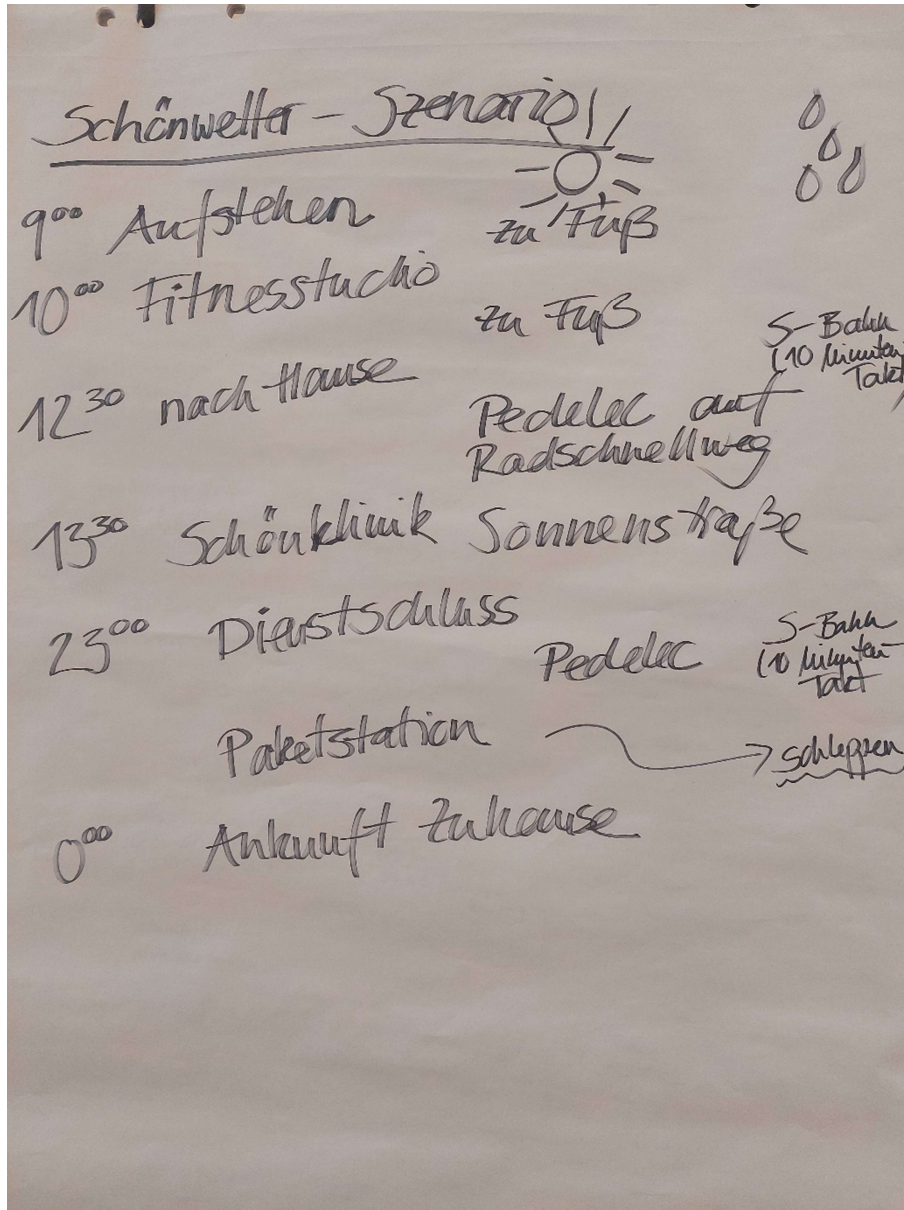 Schönwetter - Szenario
9⁰⁰ Aufstehen
zu Fuß
10⁰⁰ Fitnesstudio
zu Fuß
S-Bahn
(10 Minuten
Takt)
12³⁰ nach Hause
Pedelec auf
Radschnellweg
13³⁰ Schönklinik Sonnenstraße
23⁰⁰ Dienstschluss
Pedelec
S-Bahn
(10 Minuten-
Takt
Paketstation
schleppen
0⁰⁰ Ankunft Zuhause